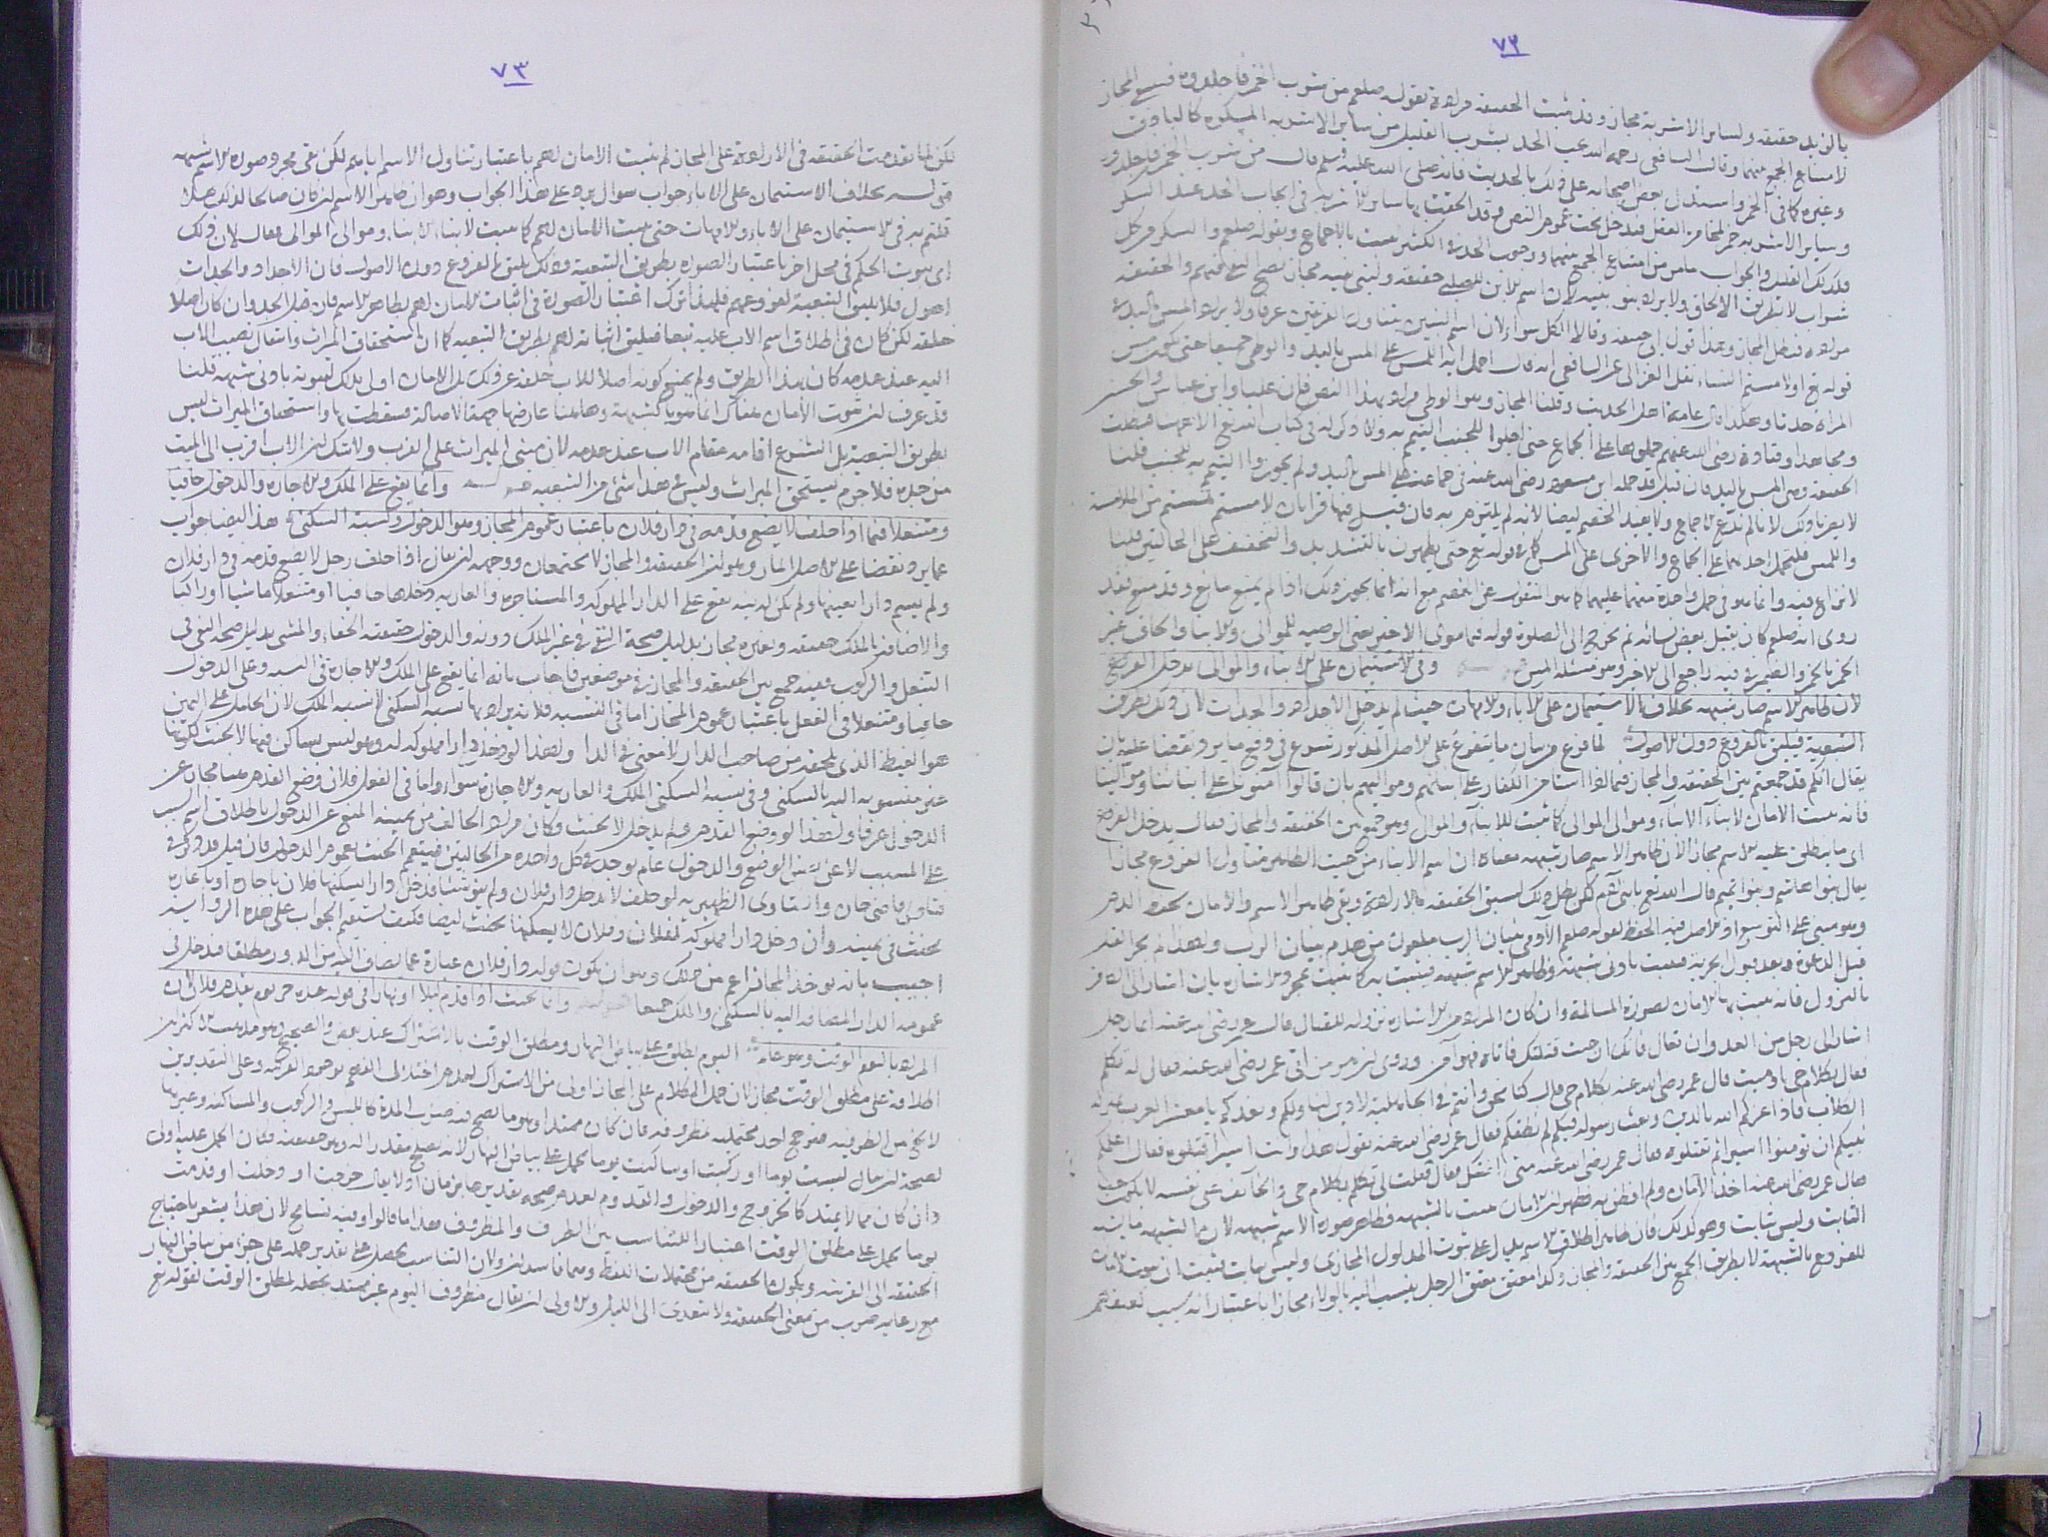 ٧٢
بالزبد حقيقه ولسائر الاشربة مجاز وقد ثبت الحقيقه مراده بقوله صلعم من شرب الخمر فاجلدوه فيسع المجاز
لامتناع الجمع بينهما وقال الشافعى رحمه الله يجب الحد بشرب القليل من ساير الاشربه المسكره كالباذق
وغيره كما فى الخمر واستدل بعض اصحابه على ذلك بالحديث فانه صلى الله عليه وسلم قال من شرب الخمر فاجلدوه
وساير الاشربه خمر لمخامرة العقل فيدخل تحت عموم النص وقد الحقت بها ساير الاشربه فى ايجاب الحد عند السكر
فكذلك القليل والجواب مامر من امتناع الجمع بينهما ووجوب الحد فى الكثير ثبت بالاجماع وبقوله صلعم والسكر من كل
شراب لا بطريق الالحاق ولا يراد بنو بنيه لان اسم الابن للصلبى حقيقه ولبنى بنيه مجاز
مراده فبطل المجاز وهذا قول ابى حنيفه وقالا الكل سواء لان اسم البنين يتناول الفريقين عرفا ولا يراد المس باليد فى
قوله تع او لامستم النساء نقل الغزالى عن الشافعى انه قال احمل ايه اللمس على المس باليد والوطى جميعا
المراه حدثا وهكذا قال عامة اهل الحديث وقلنا المجاز وهو الوطى مراد بهذا النص فان عليا وابن عباس والحسن
ومجاهدا وقتادة رضى الله عنهم حملوها على الجماع حتى احلوا للجنب التيمم
الحقيقه وهى المس باليد فان قيل قد حمله ابن مسعود رضى الله عنه فى جماعه على المس باليد ولم يجوزوا التيمم به للجنب قلنا
لا يضرنا ذلك لانا لم ندع الاجماع ولا يفيد الخصم ايضا لانه لم يلتزم به فان قيل فيها قراءتان لامستم لمستم من الملامسة
واللمس فلنحمل احديهما على الجماع والاخرى على المس كما فى قوله تع حتى يطهرن بالتشديد والتخفيف على الحالتين قلنا
لا نزاع فيه وانما هو فى حمل واحدة منهما عليهما كما هو المنقول عن الخصم مع انه انما يجوز ذلك اذا لم يمنع مانع وقد منع فقد
روى انه صلعم كان يقبل بعض نسائه ثم يخرج الى الصلوة قوله فيما سوى الاخير يعنى الوصيه للموالى والابنا والحاق غير
الخمر بالخمر والضمير فيه راجع الى الاخر وهو مسئله المس وفى الاستيمان على الابناء والموالى يدخل الفروع
لان ظاهر الاسم صار شبهه بخلاف الاستيمان على الاباء والامهات حيث لم يدخل الاجداد والجدات لان ذلك بطريق
التبعية فيليق بالفروع دون الاصول لما فرغ من بيان ما يتفرع على الاصل المذكور شرع فى دفع ما يرد نقضا عليه بان
يقال انكم قد جمعتم بين الحقيقه والمجاز فيما اذا استامن الكفار على ابنائهم ومواليهم بان قالوا آمنونا على ابنائنا وموالينا
فانه يثبت الامان لابناء الابناء وموالى الموالى كما يثبت للابناء والموالى وهو جمع بين الحقيقه والمجاز فقال يدخل الفروع
اى ما يطلق عليه الاسم مجازا لان ظاهر الاسم صار شبهه معناه ان اسم الابناء من حيث الظاهر يتناول الفروع مجازا
يقال بنو هاشم وبنو تميم قال الله تع يا بنى آدم لكن بطل ذلك لسبق الحقيقه بالارادة وبقى ظاهر الاسم والامان يحقن الدم
وهو مبنى على التوسع اذ الاصل فيه الحفظ لقوله صلعم الآدمى بنيان الرب ملعون من هدم بنيان الرب ولهذا
قبل الدعوة وبعد قبول الجزية فيثبت بادنى شبهة وظاهر الاسم شبهه فيثبت به كما يثبت بمجرد الاشاره بان اشار الى الكافر
بالنزول فانه يثبت بها الامان لصورة المسالمة وان كان المراد من الاشاره نزوله للقتال قال عمر رضى الله عنه ايما رجل
اشار الى رجل من العدو ان تعال فانك ان جئت قتلتك فاتاه فهو آمن وروى ان هرمزان اتى عمر رضى الله عنه فقال له تكلم
فقال بكلام حى او ميت قال عمر رضى الله عنه بكلام حى قال كنا نحن وانتم فى الجاهلية لا دين لنا ولكم
الكلاب فاذا عزكم الله بالدين وبعث رسوله فيكم لم نطقكم فقال عمر رضى الله عنه تقول هذا وانت اسير اقتلوه فقال
نبيكم ان تومنوا اسيرا ثم تقتلوه فقال عمر رضى الله عنه متى امنتك فقال قلت لى تكلم بكلام حى والخائف على نفسه لا يكون حيا
فقال عمر رضى الله عنه اخذ الامان ولم افطن به فظهر ان الامان يثبت بالشبهه وظاهر صورة الاسم شبهه لان الشبهه ما يشبه
الثابت وليس بثابت وهو كذلك فان ظاهر اطلاق الاسم يدل على ثبوت المدلول المجازى وليس بثابت فثبت ان ثبوت الامان
للفروع بالشبهة لا بطريق الجمع بين الحقيقه والمجاز وكذا معتق معتق الرجل ينسب اليه بالولاء مجازا باعتبار انه سبب لعتقهم
٧٣
لكن لما تقدمت الحقيقه فى الارادة على المجاز لم يثبت الامان لهم باعتبار تناول الاسم اياهم لكن بقى مجرد صورة الاسم شبهه
قوله بخلاف الاستيمان على الاباء جواب سوال يرد على هذا الجواب وهو ان ظاهر الاسم
قلتم به فى الاستيمان على الاباء والامهات حتى يثبت الامان لهم كما يثبت لابناء الابناء وموالى الموالى فقال لان ذلك
اى ثبوت الحكم فى محل اخر باعتبار الصوره بطريق التبعية وذلك يليق بالفروع دون الاصول فان الاجداد والجدات
اصول فلا يليق التبعية لفروعهم فلهذا ترك اعتبار الصورة فى اثبات الامان لهم بظاهر الاسم فان قيل الجد وان كان اصلا
خلقه لكن كان فى اطلاق اسم الاب عليه تبعا فيليق اثباته لهم بطريق التبعيه كما ان استحقاق الميراث وانتقال نصيب الاب
اليه عند عدمه كان بهذا الطريق ولم يمنع كونه اصلا للاب خلقة عن ذلك
قد عرف ان ثبوت الامان هناك انما هو بالشبهة وههنا عارضها جهة الاصالة فسقطت بها واستحقاق الميراث ليس
بطريق التبعية بل الشرع اقامه مقام الاب عند عدمه لان مبنى الميراث على القرب ولا شك ان الاب اقرب الى الميت
من جده فلا جرم يستحق الميراث وليس فى هذا شئ من التبعيه وانما يقع على الملك والاجاره والدخول حافيا
ومتنعلا فيما اذا حلف لا يضع قدمه فى دار فلان باعتبار عموم المجاز وهو الدخول ونسبة السكنى هذا ايضا جواب
عما يرد نقضا على الاصل المار وهو ان الحقيقه والمجاز لا يجتمعان ووجهه ان يقال اذا حلف رجل لا يضع قدمه فى دار فلان
ولم يسم دارا بعينها ولم يكن له نيه يقع على الدار المملوكه والمستاجره والعاريه دخلها حافيا او متنعلا ماشيا او راكبا
والاضافه بالملك حقيقه وبغيره مجاز بدليل صحة النفى فى غير الملك دونه والدخول حقيقته الحفاء والمشى بدليل صحه النفى فى
التنعل والركوب ففيه جمع بين الحقيقه والمجاز فى موضعين فاجاب بانه انما يقع على الملك والاجاره فى النسبه وعلى الدخول
حافيا ومتنعلا فى الفعل باعتبار عموم المجاز اما فى النسبه فلانه يراد بها نسبه السكنى لا نسبه الملك لان الحامل على اليمين
هو الغيظ الذى يلحقه من صاحب الدار لا معنى فى الدار ولهذا لو دخل دارا مملوكه له وهو ليس بساكن فيها لا يحنث لكونها
غير منسوبه اليه بالسكنى وفى نسبه السكنى الملك والعاريه والاجارة سواء واما فى الفعل فلان وضع القدم ههنا مجاز عن
الدخول عرفا ولهذا لو وضع القدم ولم يدخل لا يحنث فكان مراد الحالف من يمينه المنع عن الدخول باطلاق اسم السبب
على المسبب لا عن نفس الوضع والدخول عام يوجد فى كل واحده من الحالتين فيعم الحنث بعموم الدخول فان قيل قد ذكر فى
فتاوى قاضى خان والفتاوى الظهيريه لو حلف لا يدخل دار فلان ولم ينو شيئا فدخل دارا يسكنها فلان باجاره او باعاره
يحنث فى يمينه وان دخل دارا مملوكه لفلان وفلان لا يسكنها يحنث ايضا فكيف يستقيم الجواب على هذه الرواية
اجيب بانه يوخذ المجاز اعم من ذلك وهو ان يكون قوله دار فلان عبارة عما يضاف اليه من الدور مطلقا فيدخل فى
عمومه الدار المضافه اليه بالسكنى والملك جميعا وانما يحنث اذا قدم ليلا او نهارا فى قوله عبده حر يوم يقدم فلان لان
المراد باليوم الوقت وهو عام اليوم يطلق على بياض النهار ومطلق الوقت بالاشتراك عند بعض والصحيح وهو مذهب الاكثر ان
اطلاقه على مطلق الوقت مجاز لان حمل الكلام على المجاز اولى من الاشتراك لعدم اختلال الفهم بوجود القرينه وعلى التقديرين
لا يخلو من الظرفيه فيرجح احد محتمليه بمظروفه فان كان ممتدا وهو ما يصح فيه ضرب المدة كاللبس والركوب والمساكنه وغيرها
لصحة ان يقال لبست يوما او ركبت او ساكنت يوما يحمل على بياض النهار لانه يصلح مقدرا له وهو حقيقته فكان الحمل عليه اولى
وان كان مما لا يمتد كالخروج والدخول والقدوم لعدم صحة تقديرها بزمان اذ لا يقال خرجت او دخلت او قدمت
يوما يحمل على مطلق الوقت اعتبارا للتناسب بين الظرف والمظروف هذا ما قالوا وفيه تسامح لان هذا يشعر باحتياج
الحقيقه الى القرينه ويكون الحقيقه من محتملات اللفظ وهما فاسدان ولان التناسب يحصل على تقدير حمله على جزء من بياض النهار
مع رعايه ضرب من معنى الحقيقه ولا يتعدى الى الليل والاولى ان يقال مظروف اليوم غير ممتد يجعله لمطلق الوقت لقوله تع